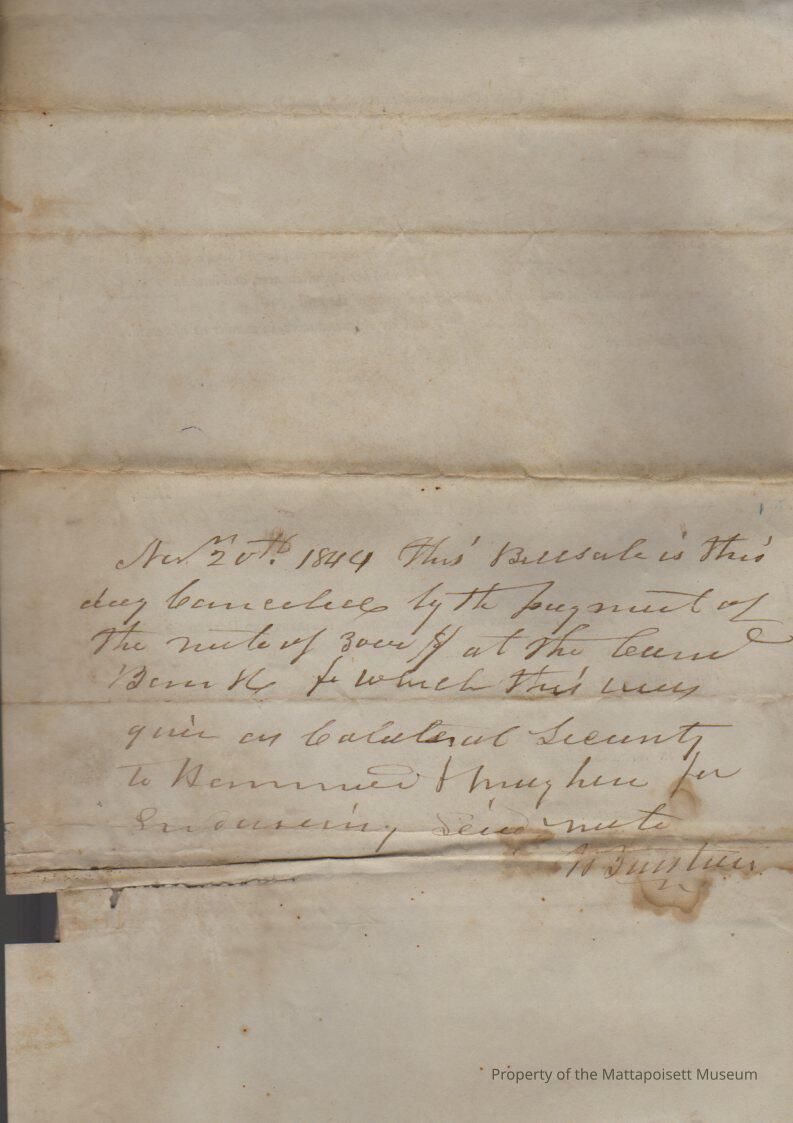 Novr 20th. 1844 This Billsale is this
day Cancelled by the payment of
the note of 3000 $ at the
Bank for which this was
givin as Colateral Security
to Hammond & for
Endorseing Said note

Property of the Mattapoisett Museum